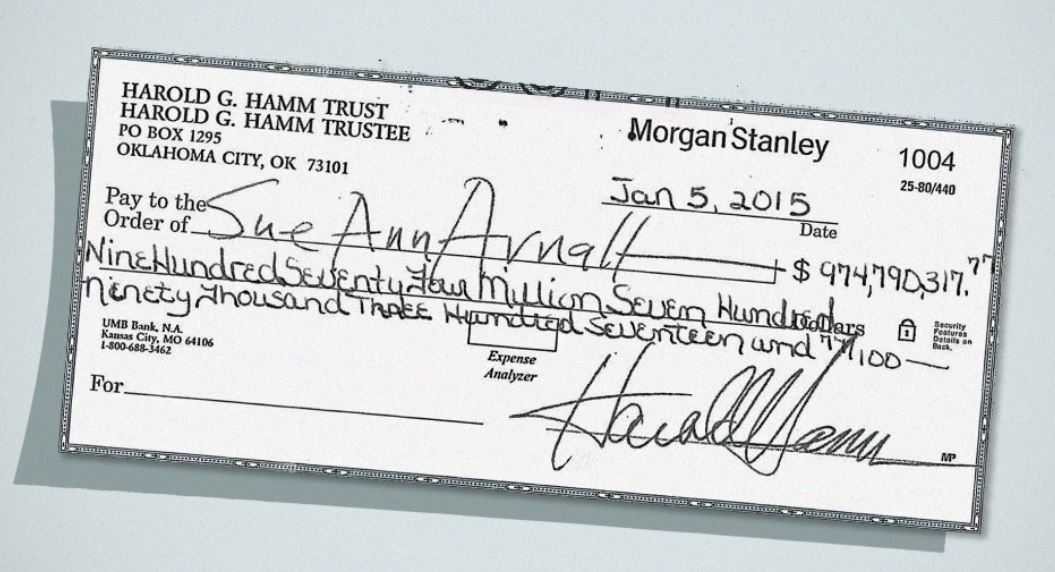 HAROLD G. HAMM TRUST
HAROLD G. HAMM TRUSTEE
PO BOX 1295
OKLAHOMA CITY, OK 73101
Morgan Stanley
1004
25-80/440
Jan 5, 2015
Date
Pay to the
Order of Sue Ann Arnall
$ 974,790,317.77
Nine Hundred Seventy Four Million Seven Hundred Dollars
Ninety Thousand Three Hundred Seventeen and 77/100
Security
Features
Details on
Back.
UMB Bank, N.A.
Kansas City, MO 64106
1-800-688-3462
Expense
Analyzer
For
Harold Hamm
MP